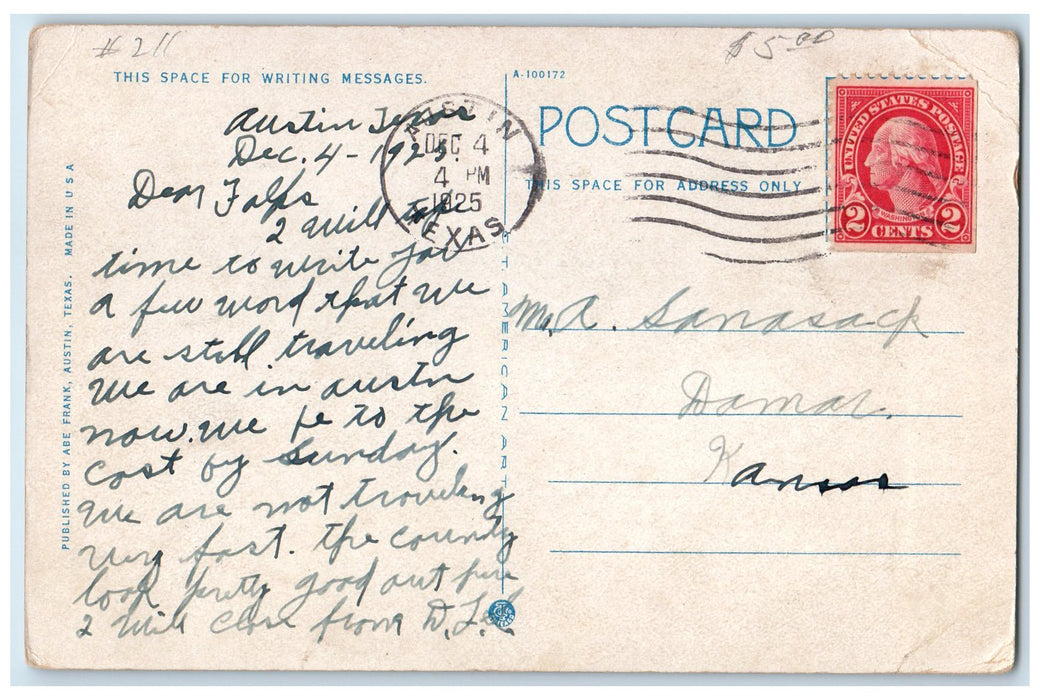 # 211
$5.00
THIS SPACE FOR WRITING MESSAGES.
A-100172
POSTCARD
THIS SPACE FOR ADDRESS ONLY
UNITED STATES POSTAGE
WASHINGTON
2 CENTS 2
AUSTIN
DEC 4
4 PM
1925
TEXAS
Austin Texas
Dec. 4 - 1925.
Dear Folks
2 will take
time to write you
a few word that we
are still traveling
We are in austin
now. we be to the
cost by Sunday.
We are not traveling
very fast. the country
look pretty good out here
2 will close from D.
Mr. A. Sanasack
Damar.
Kansas
PUBLISHED BY ABE FRANK, AUSTIN, TEXAS. MADE IN USA
C.T. AMERICAN ART